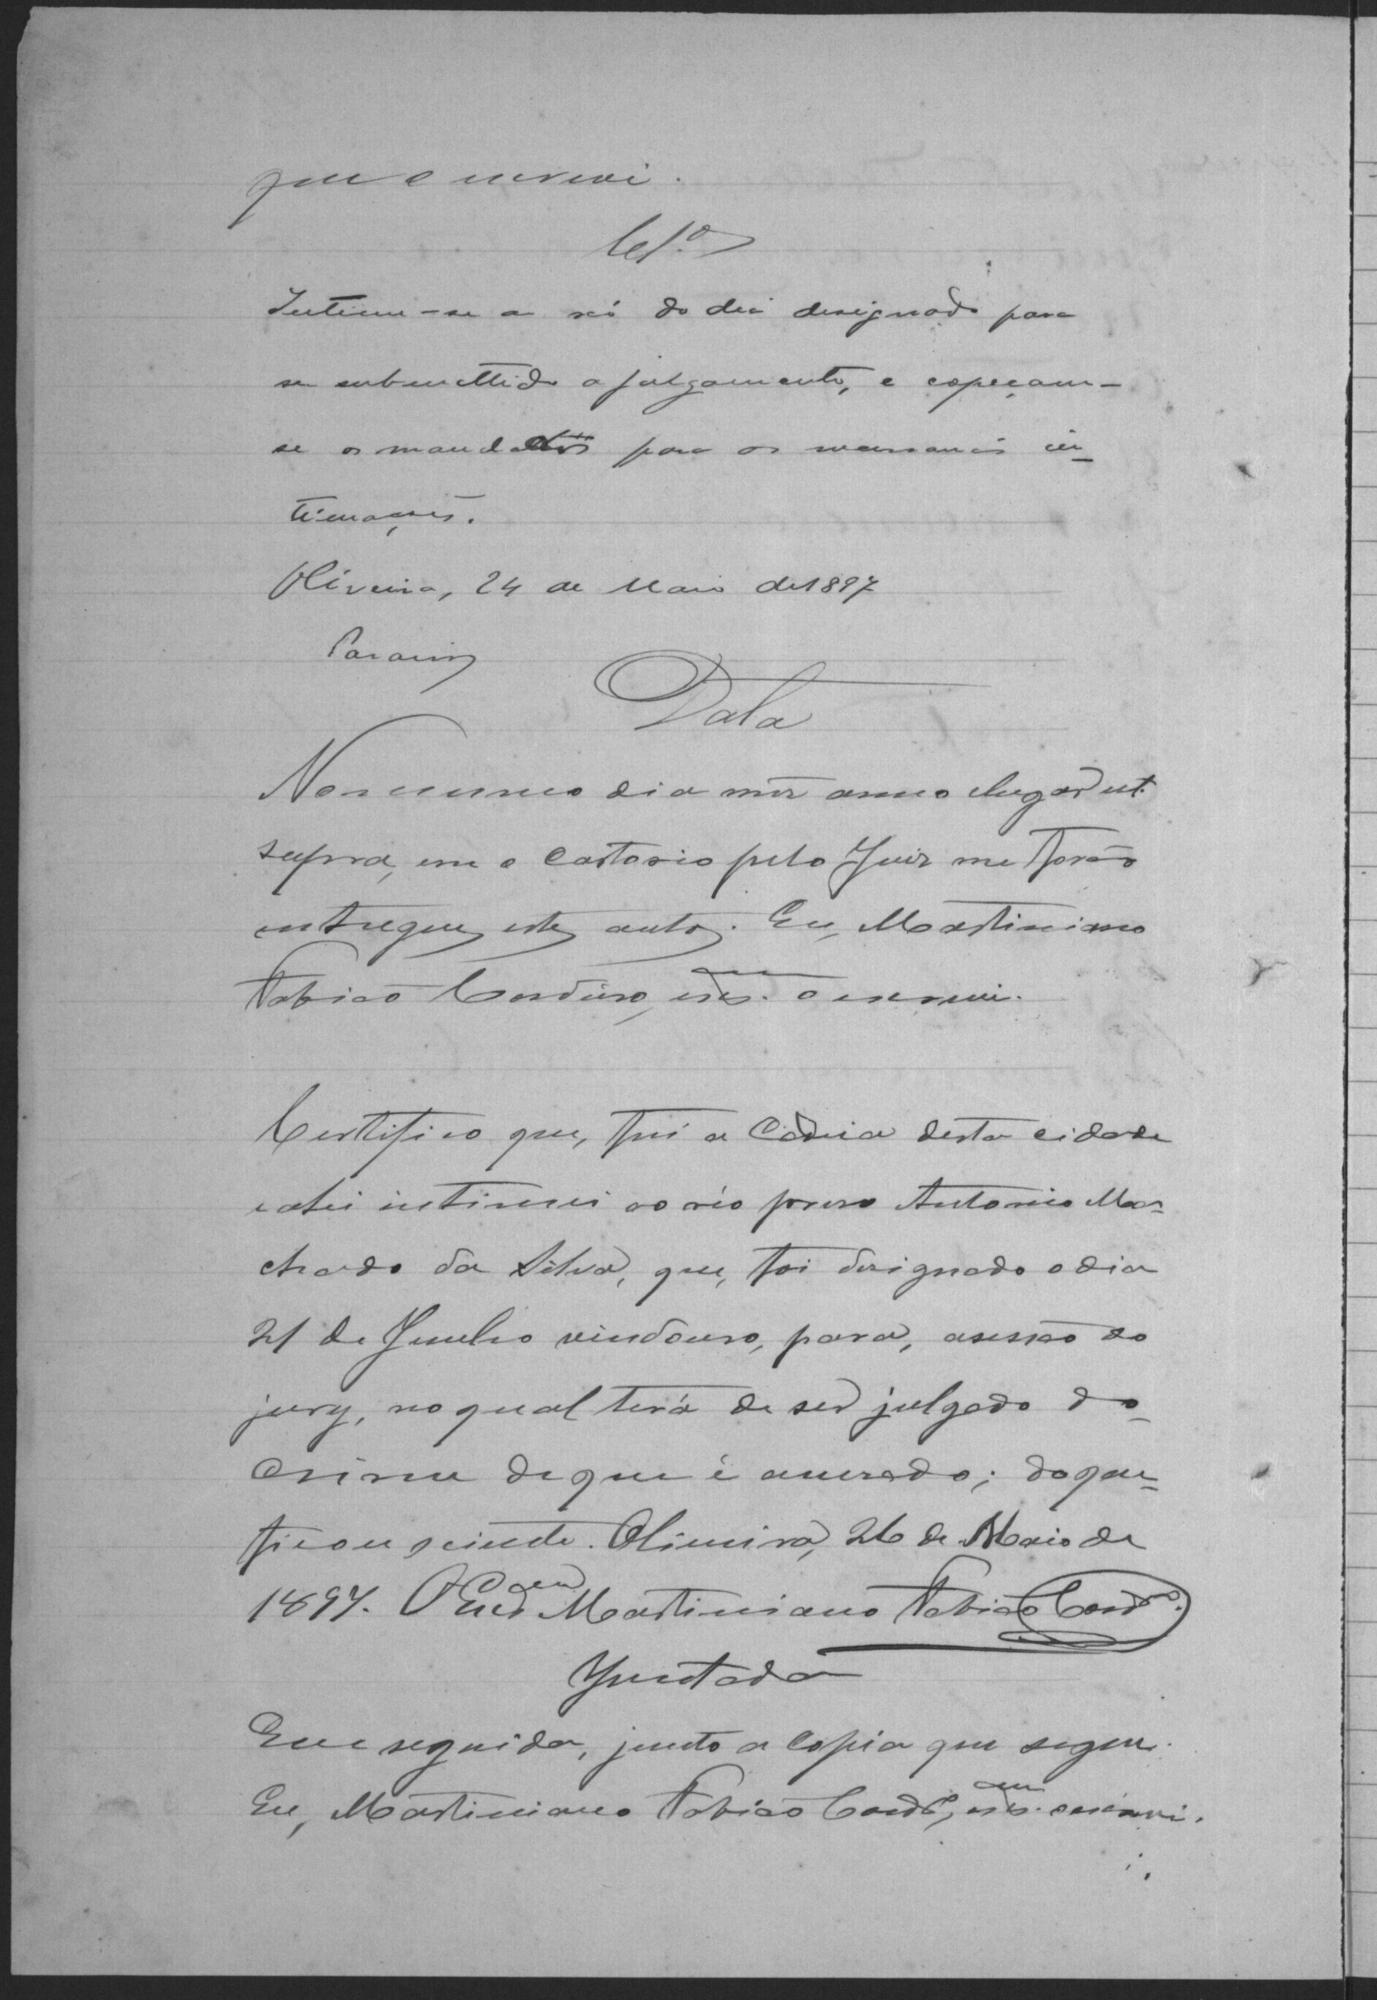 que o escrevi.
Cls.o
Intime-se o réo do dia designado para
ser submettido a julgamento, e espeçam-
se os mandados para as necessarias in-
timações.
Oliveira, 24 de Maio de 1897
Data
No mesmo dia mez anno e lugar ut
supra, em o Cartorio pelo Juiz me forão
entregues estes autos. Eu, Martiniano
Fabião Cordeiro, esc.am o escrevi.
Certifico que, fui a Cadeia desta cidade
e ahi intimei ao réo preso Antonio Ma-
chado da Silva, que, foi designado o dia
21 de Junho vindouro, para, a sessão do
jury, no qual terá de ser julgado do
crime de que é accusado; do que
ficou sciente. Oliveira, 26 de Maio de
1897. O Escam Martiniano Fabião Cordo.
Juntada
Em seguida, junto a copia que segue.
Eu, Martiniano Fabião Cordo, escam escrevi.